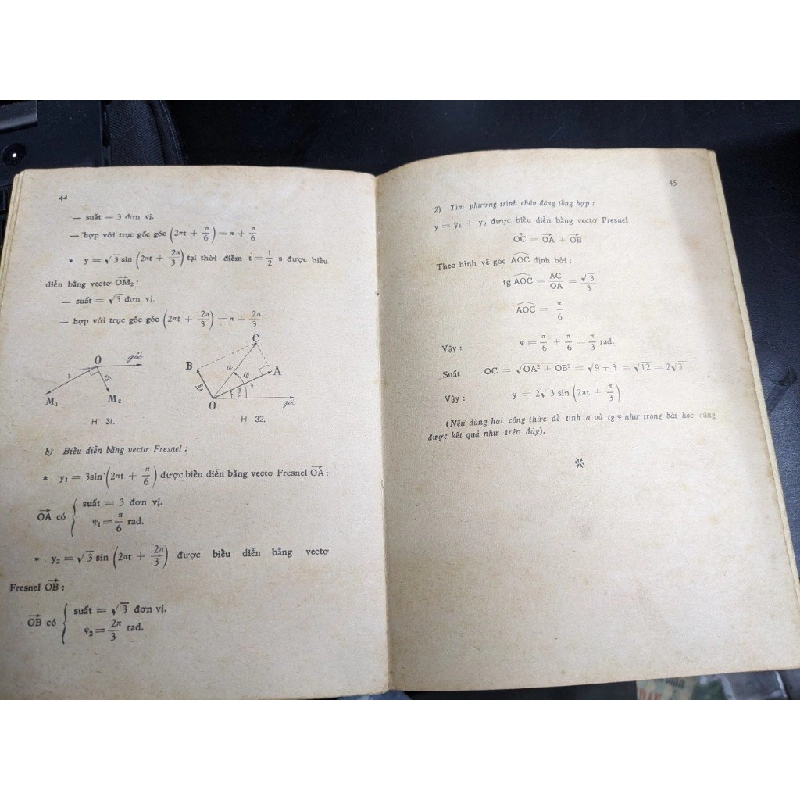 44
— suất = 3 đơn vị.
— hợp với trục gốc góc (2πt + π/6) = π + π/6
* y = √3 sin (2πt + 2π/3) tại thời điểm t = 1/2 s được biểu
diễn bằng vectơ OM₂:
— suất = √3 đơn vị.
— hợp với trục gốc góc (2πt + 2π/3) = π + 2π/3
O gốc
3
M₁ M₂
H 31.
C
B
A
O gốc
H 32.
b) Biểu diễn bằng vectơ Fresnel :
* y₁ = 3sin (2πt + π/6) được biểu diễn bằng vectơ Fresnel OA :
OA có { suất = 3 đơn vị.
φ₁ = π/6 rad.
* y₂ = √3 sin (2πt + 2π/3) được biểu diễn bằng vectơ
Fresnel OB :
OB có { suất = √3 đơn vị.
φ₂ = 2π/3 rad.
45
2) Tìm phương trình chấn động tổng hợp :
y = y₁ + y₂ được biểu diễn bằng vectơ Fresnel
OC = OA + OB
Theo hình vẽ góc AOC định bởi :
tg AOC = AC/OA = √3/3
AOC = π/6
Vậy : φ = π/6 + π/6 = π/3 rad.
Suất OC = √OA² + OB² = √9 + 3 = √12 = 2√3
Vậy : y = 2√3 sin (2πt + π/3)
(Nếu dùng hai công thức để tính a và tg φ như trong bài học cũng
được kết quả như trên đây).